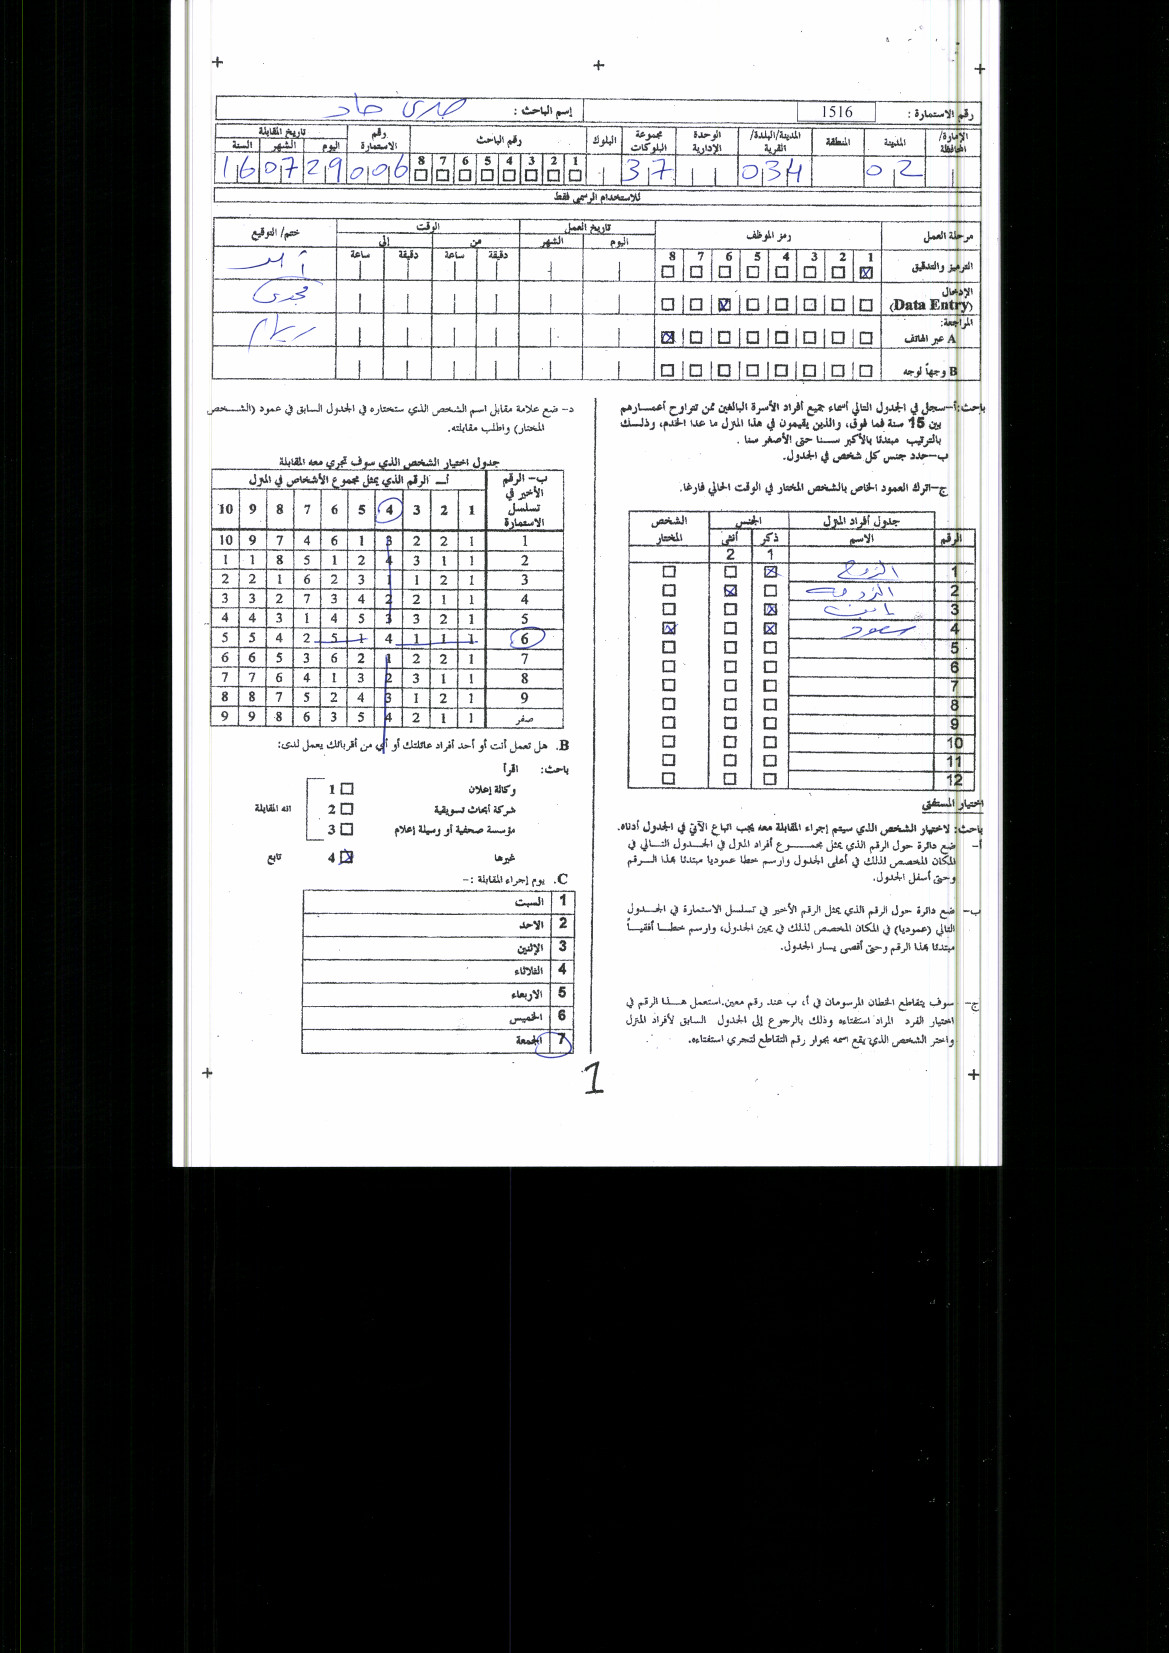 رقم الاستمارة : 1516 إسم الباحث :
الإمارة/المحافظة المدينة المنطقة المدينة/البلدة/القرية الوحدة الإدارية مجموعة البلوكات البلوك رقم الباحث رقم الاستمارة تاريخ المقابلة
8 7 6 5 4 3 2 1 اليوم الشهر السنة
02 034 37 006 29 07 16
للاستخدام الرسمي فقط
مرحلة العمل رمز الموظف تاريخ العمل الوقت ختم/ التوقيع
اليوم الشهر من إلى
8 7 6 5 4 3 2 1 دقيقة ساعة دقيقة ساعة
الترميز والتدقيق
الإدخال
(Data Entry) مجدى
المراجعة:
A عبر الهاتف ريام
B وجهاً لوجه
باحث: أ-سجل في الجدول التالي أسماء جميع أفراد الأسرة البالغين ممن تتراوح أعمارهم
بين 15 سنة فما فوق، والذين يقيمون في هذا المنزل ما عدا الخدم، وذلك
بالترتيب مبتدئا بالأكبر سنا حتى الأصغر سنا .
ب-حدد جنس كل شخص في الجدول.
ج-اترك العمود الخاص بالشخص المختار في الوقت الحالي فارغا.
جدول أفراد المنزل الجنس الشخص
الرقم الاسم ذكر أنثى المختار
1 2
1 الزوج
2 الزوجه
3 ابن
4 سعود
5
6
7
8
9
10
11
12
اختيار المستفتى
باحث: لاختيار الشخص الذي سيتم إجراء المقابلة معه يجب اتباع الآتي في الجدول أدناه.
أ- ضع دائرة حول الرقم الذي يمثل مجموع أفراد المنزل في الجدول التالي في
المكان المخصص لذلك في أعلى الجدول وارسم خطا عموديا مبتدئا بهذا الرقم
وحتى أسفل الجدول.
ب- ضع دائرة حول الرقم الذي يمثل الرقم الأخير في تسلسل الاستمارة في الجدول
التالي (عموديا) في المكان المخصص لذلك في يمين الجدول، وارسم خطا أفقياً
مبتدئا بهذا الرقم وحتى أقصى يسار الجدول.
ج- سوف يتقاطع الخطان المرسومان في أ، ب عند رقم معين.استعمل هذا الرقم في
اختيار الفرد المراد استفتاءه وذلك بالرجوع إلى الجدول السابق لأفراد المنزل
واختر الشخص الذي يقع اسمه بجوار رقم التقاطع لتجري استفتاءه.
د- ضع علامة مقابل اسم الشخص الذي ستختاره في الجدول السابق في عمود (الشخص
المختار) واطلب مقابلته.
جدول اختيار الشخص الذي سوف تجري معه المقابلة
ب- الرقم الأخير في تسلسل الاستمارة أ- الرقم الذي يمثل مجموع الأشخاص في المنزل
10 9 8 7 6 5 4 3 2 1
10 9 7 4 6 1 3 2 2 1 1
1 1 8 5 1 2 4 3 1 1 2
2 2 1 6 2 3 1 1 2 1 3
3 3 2 7 3 4 2 2 1 1 4
4 4 3 1 4 5 3 3 2 1 5
5 5 4 2 5 1 4 1 1 1 6
6 6 5 3 6 2 1 2 2 1 7
7 7 6 4 1 3 2 3 1 1 8
8 8 7 5 2 4 3 1 2 1 9
9 9 8 6 3 5 4 2 1 1 صفر
B. هل تعمل أنت أو أحد أفراد عائلتك أو أي من أقربائك يعمل لدى:
باحث: اقرأ
وكالة إعلان 1
شركة أبحاث تسويقية 2 انه المقابلة
مؤسسة صحفية أو وسيلة إعلام 3
غيرها 4 تابع
C. يوم إجراء المقابلة :-
السبت 1
الاحد 2
الإثنين 3
الثلاثاء 4
الاربعاء 5
الخميس 6
الجمعة 7
1